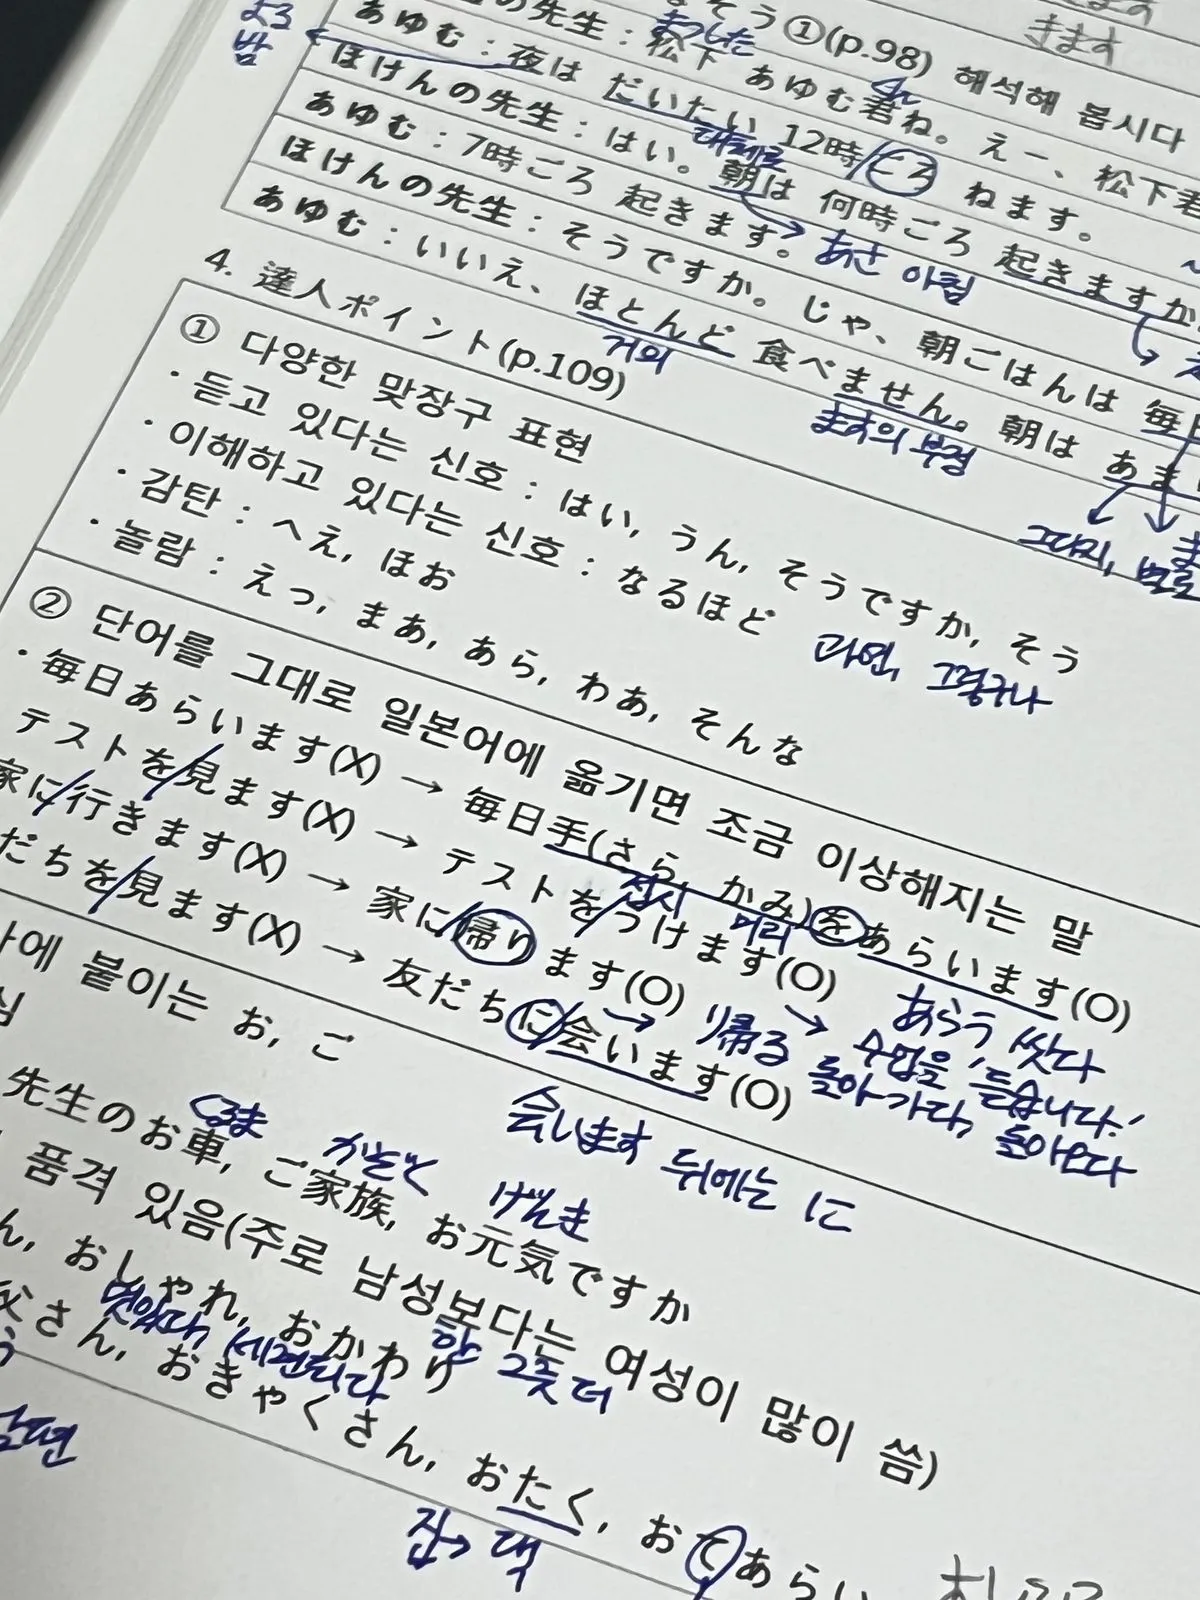 きます
そう①(p.98) 해석해 봅시다
よる
밤
まつした
の先生 : 松下 あゆむ君ね。えー、松下君
くん
あゆむ : 夜は だいたい 12時ごろ ねます。
대체로
ほけんの先生 : はい。朝は 何時ごろ 起きますか
あさ 아침
あゆむ : 7時ごろ 起きます。
ほけんの先生 : そうですか。じゃ、朝ごはんは 毎日
あゆむ : いいえ、ほとんど 食べません。朝は あまり
거의
ます의 부정
그다지, 별로
4. 達人ポイント(p.109)
① 다양한 맞장구 표현
· 듣고 있다는 신호 : はい, うん, そうですか, そう
· 이해하고 있다는 신호 : なるほど
과연, 그렇구나
· 감탄 : へえ, ほお
· 놀람 : えっ, まあ, あら, わあ, そんな
② 단어를 그대로 일본어에 옮기면 조금 이상해지는 말
· 毎日あらいます(X) → 毎日手(さら, かみ)をあらいます(O)
접시 머리
あらう 씻다
テストを見ます(X) → テストをうけます(O)
→ 수업을 듣습니다!
家に行きます(X) → 家に帰ります(O)
→ 帰る 돌아가다, 돌아오다
だちを見ます(X) → 友だちに会います(O)
会います 뒤에는 に
사에 붙이는 お, ご
심
くるま かぞく げんき
先生のお車, ご家族, お元気ですか
품격 있음(주로 남성보다는 여성이 많이 씀)
ん, おしゃれ, おかわり
멋있다, 세련되다 한 그릇 더
さん, おきゃくさん, おたく, おてあらい
집→ 댁